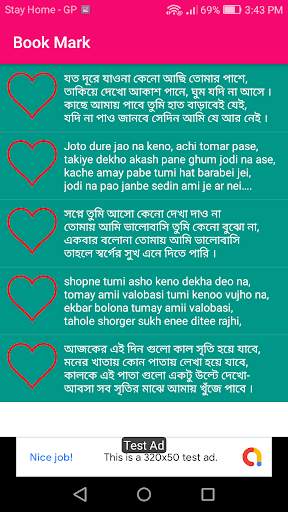 Stay Home - GP
3:43 PM
Book Mark
যত দূরে যাওনা কেনো আছি তোমার পাশে,
তাকিয়ে দেখো আকাশ পানে, ঘুম যদি না আসে ।
কাছে আমায় পাবে তুমি হাত বাড়াবেই যেই,
যদি না পাও জানবে সেদিন আমি যে আর নেই ।
Joto dure jao na keno, achi tomar pase,
takiye dekho akash pane ghum jodi na ase,
kache amay pabe tumi hat barabei jei,
jodi na pao janbe sedin ami je ar nei....
সপ্নে তুমি আসো কেনো দেখা দাও না
তোমায় আমি ভালোবাসি তুমি কেনো বুঝো না,
একবার বলোনা তোমায় আমি ভালোবাসি
তাহলে স্বর্গের সুখ এনে দিতে পারি ।
shopne tumi asho keno dekha deo na,
tomay amii valobasi tumi kenoo vujho na,
ekbar bolona tomay ami valobasi,
tahole shorger sukh enee ditee rajhi,
আজকের এই দিন গুলো কাল সৃতি হয়ে যাবে,
মনের খাতায় কোন পাতায় লেখা হয়ে যাবে,
কালকে এই পাতা গুলো একটু উল্টে দেখো-
আবসা সব সৃতির মাঝে আমায় খুঁজে পাবে ।
Test Ad
Nice job!
This is a 320x50 test ad.